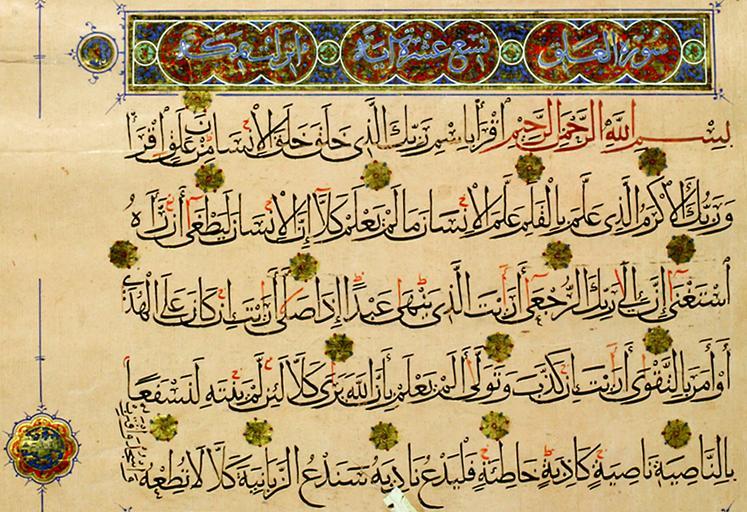 سورة العلق تسع عشرة آية انزلت بمكة
بِسْمِ اللَّهِ الرَّحْمَنِ الرَّحِيمِ ٱقْرَأْ بِاسْمِ رَبِّكَ الَّذِي خَلَقَ خَلَقَ الْإِنْسَانَ مِنْ عَلَقٍ اقْرَأْ
وَرَبُّكَ الْأَكْرَمُ الَّذِي عَلَّمَ بِالْقَلَمِ عَلَّمَ الْإِنْسَانَ مَا لَمْ يَعْلَمْ كَلَّا إِنَّ الْإِنْسَانَ لَيَطْغَى أَنْ رَآهُ
ٱسْتَغْنَى إِنَّ إِلَى رَبِّكَ الرُّجْعَى أَرَأَيْتَ الَّذِي يَنْهَى عَبْدًا إِذَا صَلَّى أَرَأَيْتَ إِنْ كَانَ عَلَى الْهُدَى
أَوْ أَمَرَ بِالتَّقْوَى أَرَأَيْتَ إِنْ كَذَّبَ وَتَوَلَّى أَلَمْ يَعْلَمْ بِأَنَّ اللَّهَ يَرَى كَلَّا لَئِنْ لَمْ يَنْتَهِ لَنَسْفَعًا
بِالنَّاصِيَةِ نَاصِيَةٍ كَاذِبَةٍ خَاطِئَةٍ فَلْيَدْعُ نَادِيَهُ سَنَدْعُ الزَّبَانِيَةَ كَلَّا لَا تُطِعْهُ